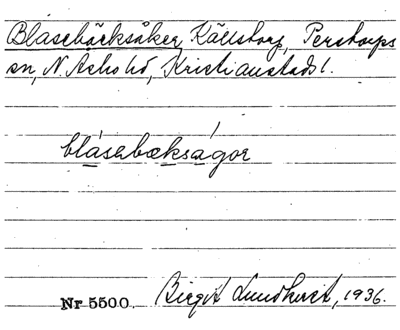 Blasebäcksåker, Källstorp, Perstorps
sn, N. Åsbo hd, Kristianstads l.
blásabækságor
Nr 5500. Birgit Lundkvist, 1936.